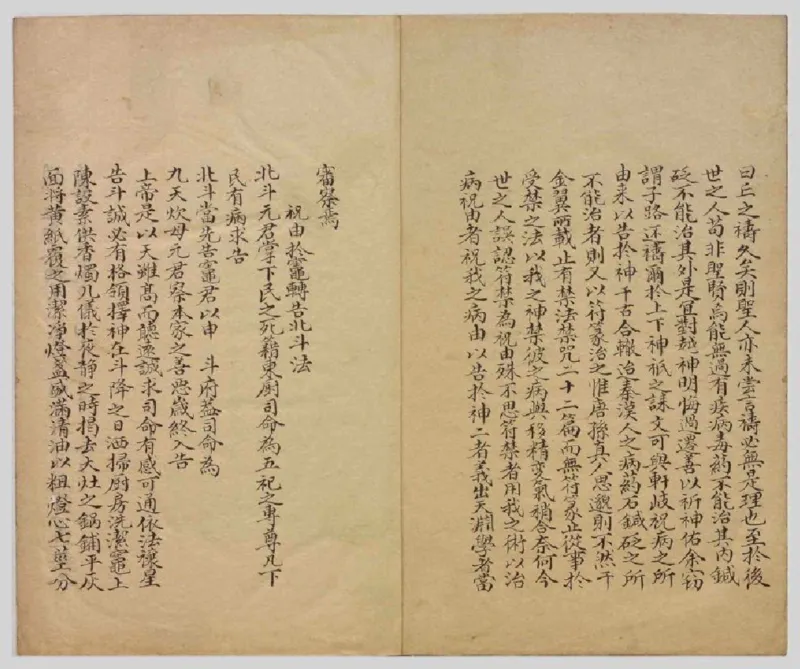 曰丘之禱久矣則聖人亦未嘗言禱必無是理也至於後
世之人苟非聖賢焉能無過有疾病毒葯不能治其内鍼
砭不能治其外是宜對越神明悔過遷善以祈神佑余竊
謂子路述禱爾於上下神祇之誄文可與軒岐祝病之所
由来以告於神千古合轍迨秦漢人之病葯石鍼砭之所
不能治者則又以符篆治之惟唐孫真人思邈則不然千
金翼所載止有禁法禁咒二十二篇而無符篆止從事於
受禁之法以我之神禁彼之病與移精變氣稍合奈何今
世之人誤認符禁為祝由殊不思符禁者用我之術以治
病祝由者祝我之病由以告於神二者義出天淵學者當
審察焉
祝由於竈轉告北斗法
北斗元君掌下民之死籍東厨司命為五祀之専尊凡下
民有病求告
北斗當先告竈君以申 斗府葢司命為
九天炊母元君察本家之善惡歲終入告
上帝是以天雖髙而聽邇誠求司命有感可通依法禳星
告斗誠必有格領擇神在斗降之日洒掃厨房洗潔竈上
陳設素供香燭凡儀於夜静之時揭去大灶之鍋鋪平灰
面將黄紙覆之用潔净燈盞盛滿清油以粗燈心七莖分